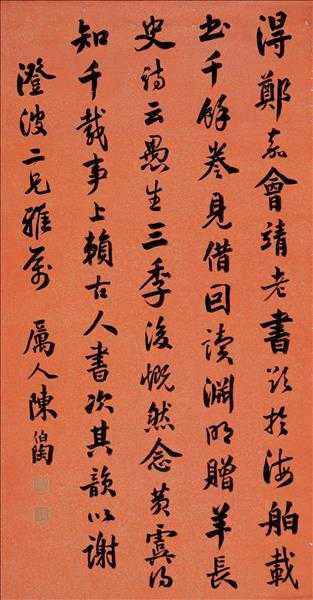 得鄭嘉會靖老書欲於海舶載
書千餘卷見借因讀淵明贈羊長
史詩云愚生三季後慨然念黃虞得
知千載事上賴古人書次其韻以謝
澄波二兄雅屬 厲人陳伯陶